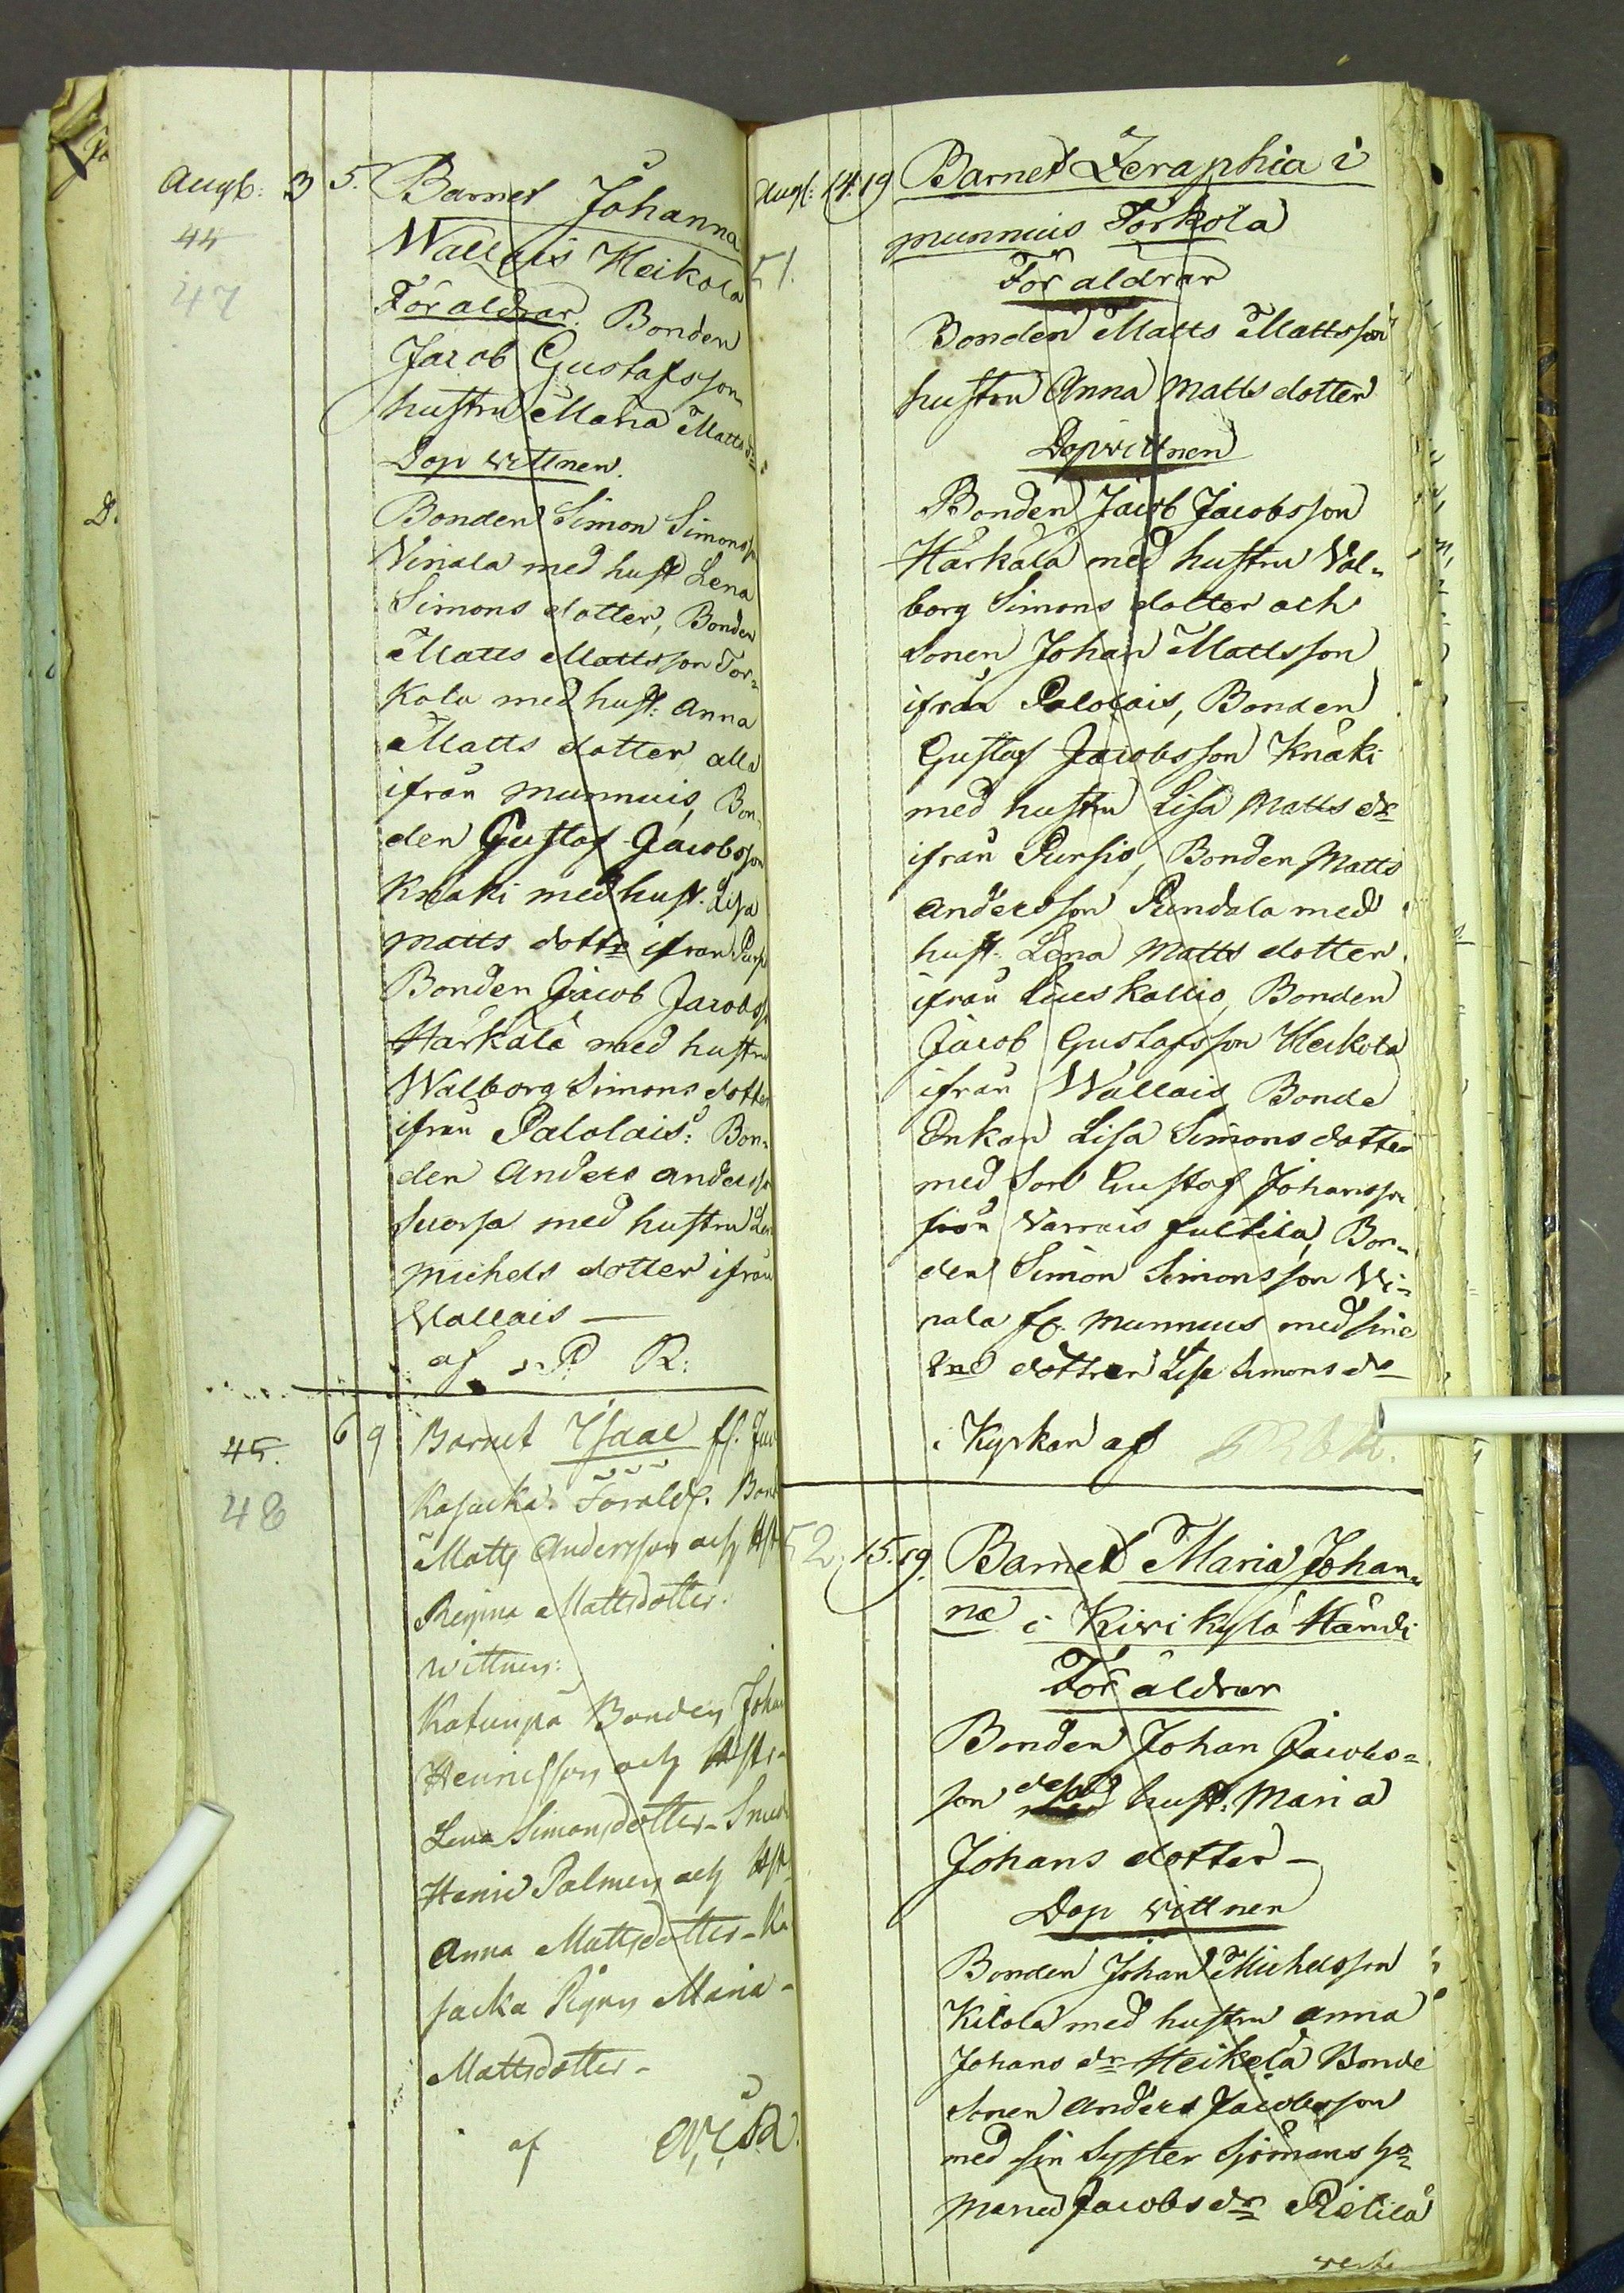 Augs: 3 5. Barnet Johanna
44 Wallais Heikola
47 Föräldrar. Bonden
Jacob Gustafsson
hustru Maria Matts dr
Dop wittnen.
Bonden Simon Simonss
Ninala med hust Lena
Simons dotter, Bonden
Matts Mattsson Tor-
kola med hust: Anna
Matts dotter alla
ifrån Munnuis, Bon-
den Gustaf Jacobsson
Knaki med hust. Lisa
Matts dottr ifrån Purs
Bonden Jacob Jacobss
Härkälä med hustru
Walborg Simons dotter
ifrån Palolais: Bon-
den Anders Anderss
Suorsa med hustru
Michels dotter ifrån
Wallais —
af P R:
45. 6 9 Barnet Isaac
48 Kasacka. Foräld. Bond
Matts Andersson och Hst
Regina Mattsdotter.
Wittnen:
Bonden Joha
Henricsson och Hstr-
Lena Simonsdotter - Smed
Henric Palmen och Hst
Anna Mattsdotter - Ka
sacka Pigan Maria -
Mattsdotter -
af
Augs: 14. 19 Barnet Seraphia i
Munnuis Torkola
51. För äldrar
Bonden Matts Mattsson
hustru Anna Matts dotter
Dopwittnen
Bonden Jacob Jacobsson
Härkälä med hustru Val-
borg Simons dotter och
Sonen Johan Mattsson
ifrån Palolais, Bonden
Gustaf Jacobsson Knaki
med hustru Lisa Matts dr
ifrån Pursis, Bonden Matts
Andersson Pundola med
hust. Lena Matts dotter
ifrån Bonden
Jacob Gustafsson Heikola
ifrån Wallais, Bonde
Enkan Lisa Simons dotter
med Son Gustaf Johansson
från Varrais Bon-
den Simon Simonsson Ni-
nala fr. Munnuis med sine
2ne döttrar Lisa Simons dr
i Kyrkan af
52. 15. 19. Barnet Maria Johan-
na i Kiwi kylä Händi
För äldrar
Bonden Johan Jacobs-
son dess hust: Maria
Johans dotter -
Dop wittnen
Bonden Johan Michelsson
Kilola med hustru Anna
Johans dr Heikelä Bonde
Sonen Anders Jacobsson
med sin Syster
Maria Jacobs dr